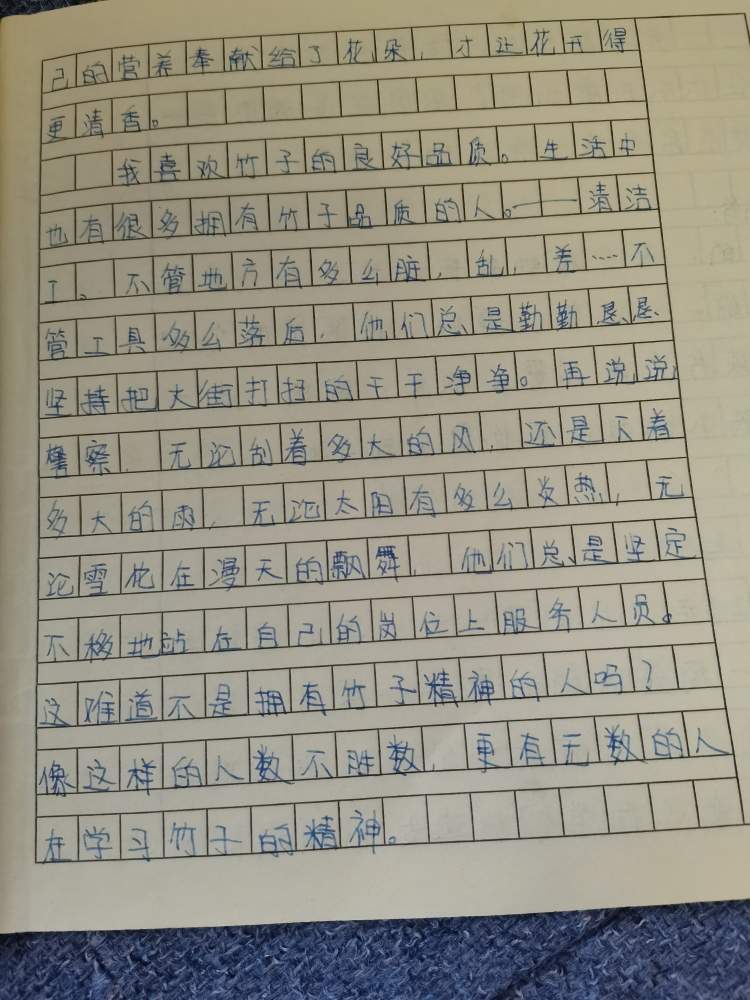 己的营养奉献给了花朵，才让花开得
更清香。
我喜欢竹子的良好品质。生活中
也有很多拥有竹子品质的人。——清洁
工。不管地方有多么脏，乱，差…不
管工具多么落后，他们总是勤勤恳恳
坚持把大街打扫的干干净净。再说说
警察，无论刮着多大的风，还是下着
多大的雨，无论太阳有多么炎热，无
论雪花在漫天的飘舞，他们总是坚定
不移地站在自己的岗位上服务人员。
这难道不是拥有竹子精神的人吗？
像这样的人数不胜数，更有无数的人
在学习竹子的精神。